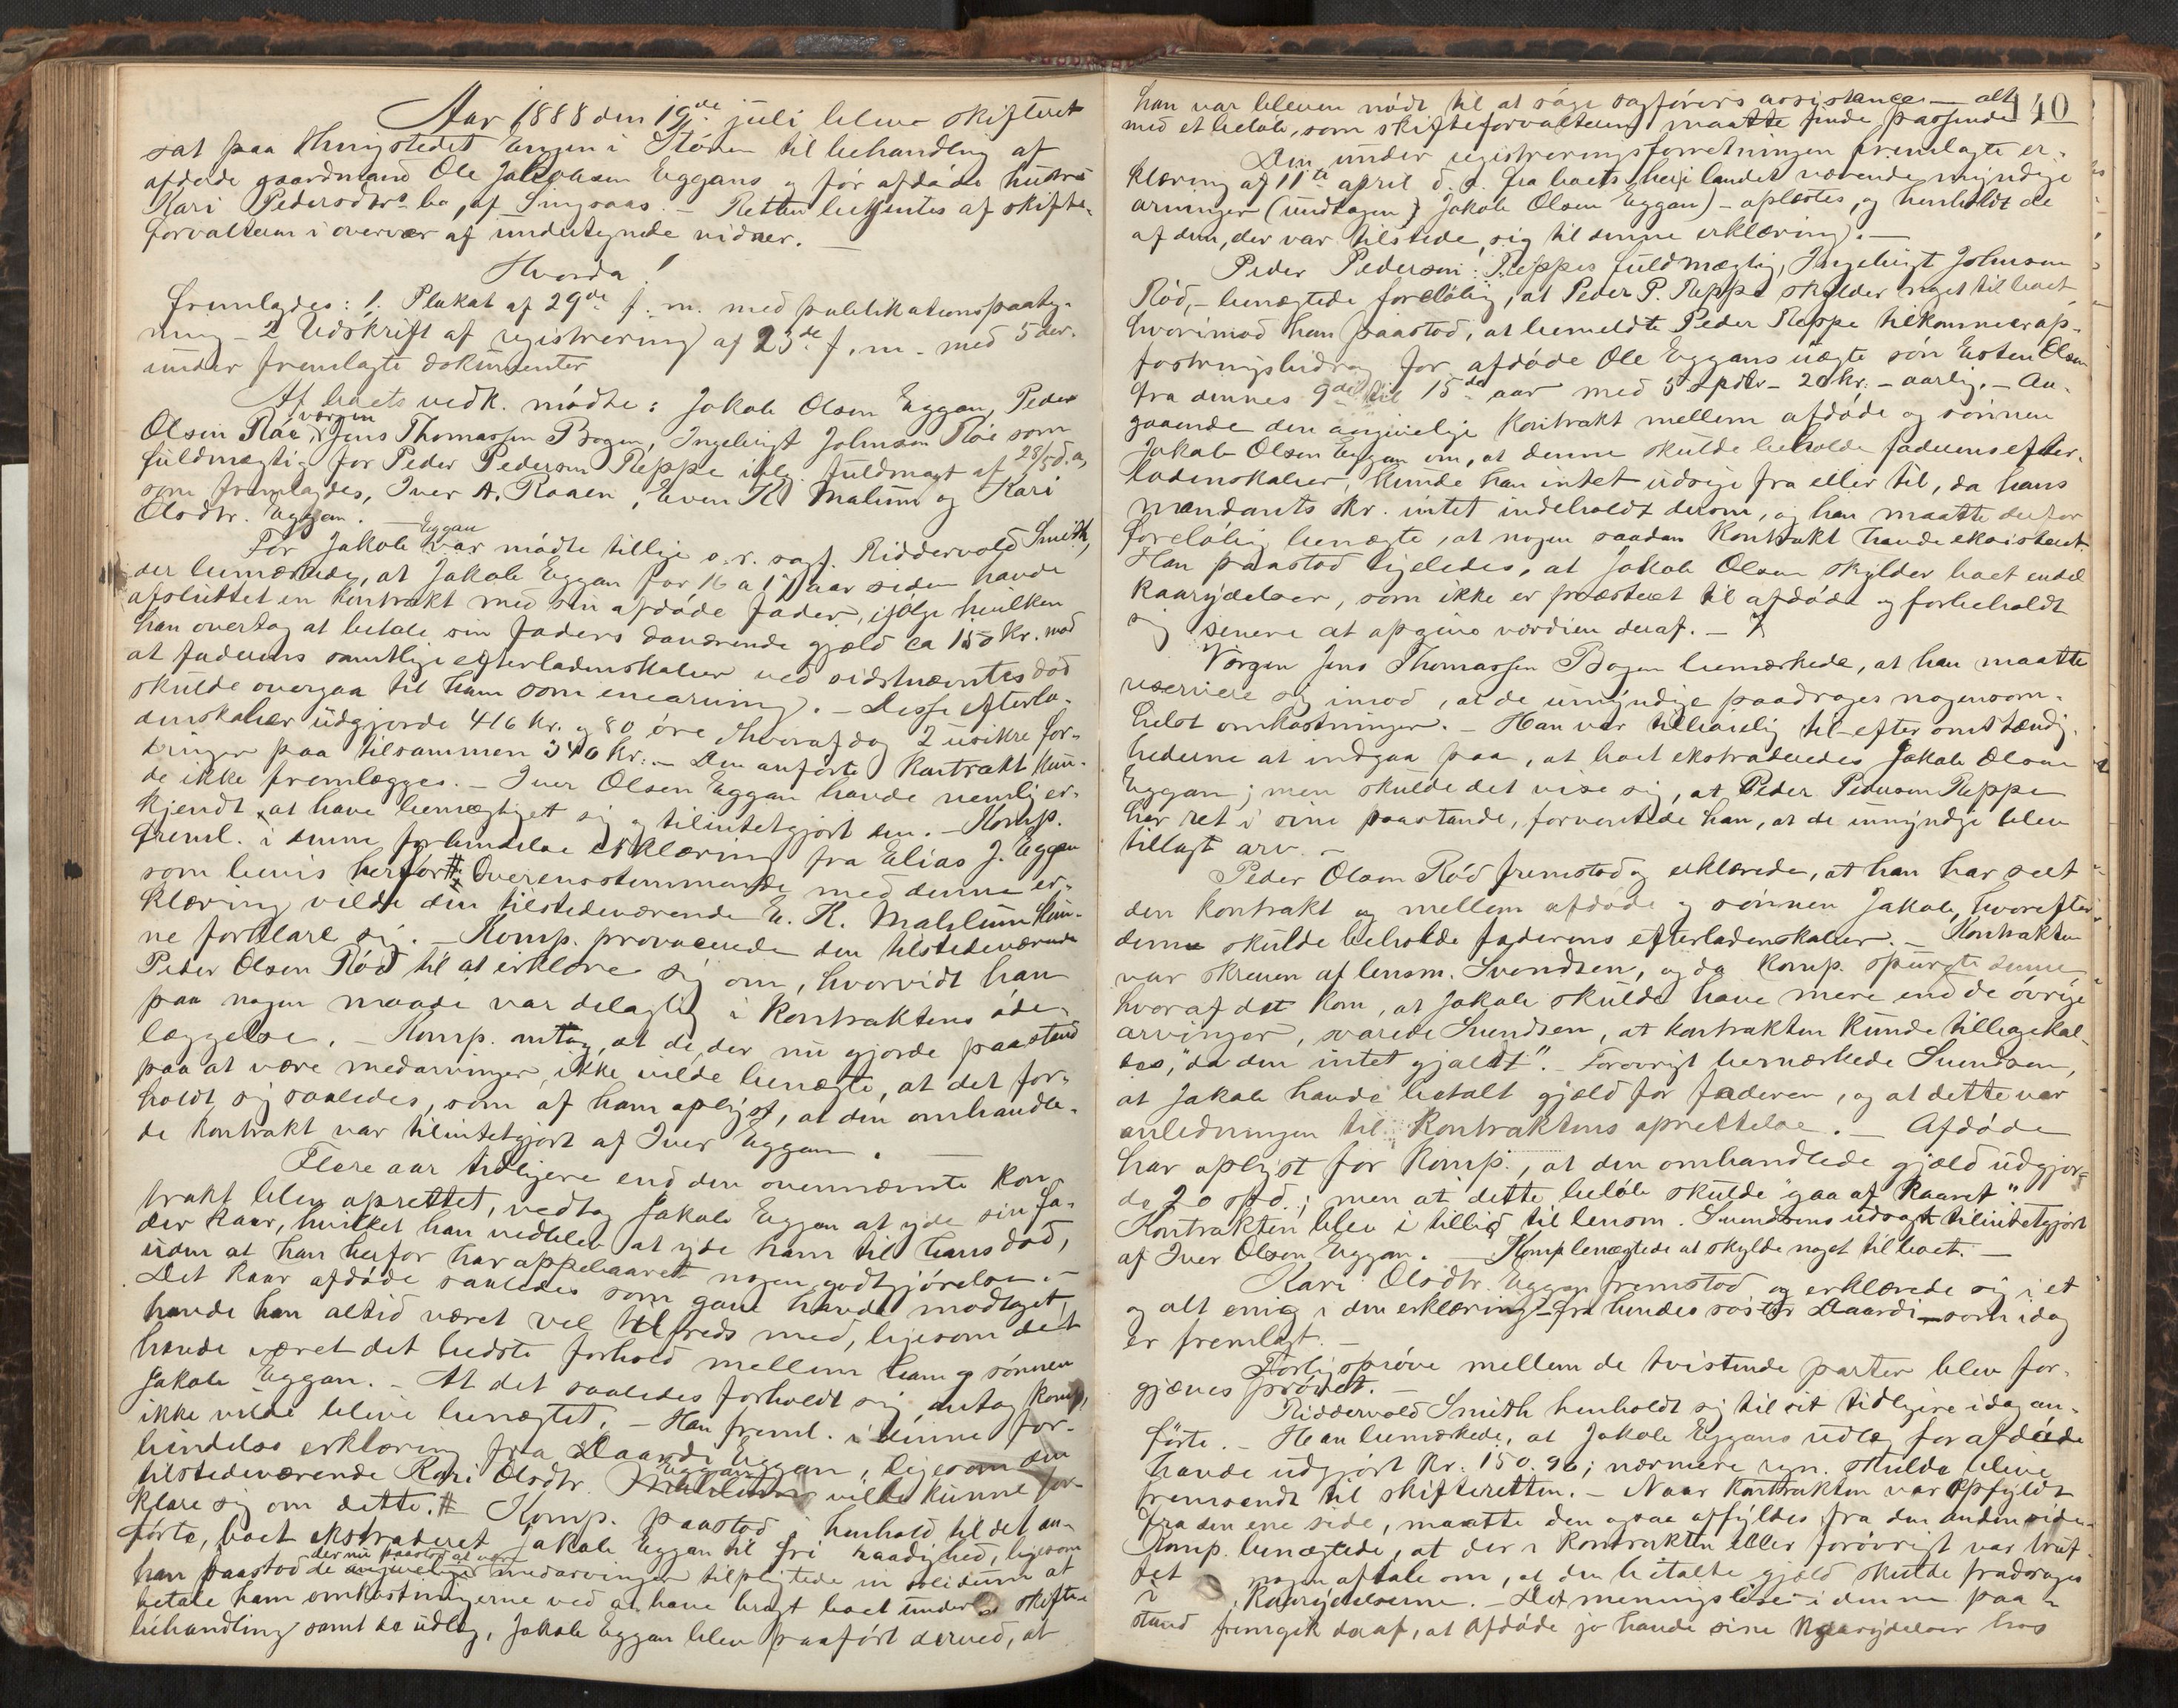 Aar 1888 den 19de juli blev skifteret
sat paa thingstedet Engen i Stören til behandling af
afdøde gaardmand Ole Jakobsen Eggans og før afdøde hustru
Kari Pedersdtrs bo, af Singsaas. – Retten betjentes af skifte-
forvalteren i overvær af undertegnede vidner. –
Hvorda!
fremlagdes: 1. Plakat af 29de f. m. med publikationspaateg-
ning – 2 Udskrift af registrering af 23de f. m. med 5 der-
under fremlagte dokumenter
Af boets vedk. mødte: Jakob Olsen Eggan, Peder
Olsen Röe, værgen Jens Thomassen Bogen, Ingebrigt Johnsen Röe som
fuldmægtig for Peder Pedersen Reppe iflg. fuldmagt af 28/5 d. a,
som fremlagdes, Iver A. Roaen, Even K. Mahlum og Kari
Olsdtr. Eggan.
For Jakob Eggan var mødte tillige o.r. sagf. Riddervold Smith,
der bemærkede, at Jakob Eggan for 16 a 17 aar siden havde
afsluttet en kontrakt med sin afdøde fader, ifølge hvilken
han overtog at betale sin faders daværende gjæld ca 150 kr. mod
at faderens samtlige efterladenskaber ved sidstnævntes død
skulde overgaa til ham som enearving. – Disse efterla-
denskaber udgjorde 416 kr. og 80 øre hvoraf dog 2 usikre for-
dringer paa tilsammen 340 kr. – Den anførte kontrakt kun-
de ikke fremlægges. – Iver Olsen Eggan havde nemlig er-
kjendt at have bemægtiget sig og tilintetgjort den. – Komp.
freml. i denne forbindelse erklæring fra Elias J. Eggen
som bevis herfor # Overensstemmende med denne er-
klæring vilde den tilstedeværende E. K. Mahlum kun-
ne forklare sig. – Komp. provocerede den tilstedeværende
Peder Olsen Röd til at erklære sig om, hvorvidt han
paa nogen maade var delagtig i kontraktens øde-
læggelse. – Komp. antog, at de, der nu gjorde paastand
paa at være medarvinger, ikke vilde benægte, at det for-
holdt sig saaledes, som af ham oplyst, at den omhandle-
de kontrakt var tilintetgjort af Iver Eggan.
Flere aar tidligere end den ovennævnte kon-
trakt blev oprettet, vedtog Jakob Eggan at yde sin fa-
der kaar, hvilket han vedblev at yde ham til hans død,
uden at han herfor har oppebaaret nogen godtgjørelse. –
Det kaar afdøde saaledes som gave havde modtaget,
havde han altid været vel tilfreds med, ligesom det
havde været det bedste forhold mellem ham og sønnen
Jakob Eggan. – At det saaledes forholdt sig, antog komp,
ikke vilde blive benægtet. – Han freml. i denne for-
bindelse erklæring fra Eggan, ligesom den
tilstedeværende Kari Olsdtr. Eggan vilde kunne for-
klare sig om dette. # Komp. paastod i henhold til det an-
førte, boet ekstraderet Jakob Eggan til fri raadighed, ligesom
han paastod de der nu paastod at være medarvinger tilpligtede in solidum at
betale ham omkostningerne ved at have bragt boet under skifte-
behandling samt de udlæg, Jakob Eggan blev paaført derved, at
140
han var bleven nødt til at søge sagførers assistance – alt
med et beløb, som skifteforvalteren maatte finde passende
Den under registreringsforretningen fremlagte er-
klæring af 11te april d. a. fra boets her i landet værende myndige
arvinger (undtagen Jakob Olsen Eggan) – oplæstes, og henholdt de
af dem, der var tilstede, sig til denne erklæring. –
Peder Pedersen Reppes fuldmægtig, Ingebrigt Johnsen
Röd, – benægtede foreløbig, at Peder P. Reppe skylder noget til boet
hvorimod han paastod, at bemeldte Peder Reppe tilkommer op-
fostringsbidrag for afdøde Ole Eggans uægte søn Esten Olsen
fra dennes 9de til 15de aar med 5 Spdlr – 20 kr. – aarlig. – An-
gaaende den angivelige kontrakt mellem afdøde og sønnen
Jakob Olsen Eggan om, at denne skulde beholde faderens efter-
ladenskaber, kunde han intet udsige fra eller til, da hans
mandants skr. intet indeholdt derom, og han maatte derfor
foreløbig benægte, at nogen saadan kontrakt havde eksisteret.
Han paastod ligeledes, at Jakob Olsen skylder boet endel
kaarydelser, som ikke er præsteret til afdøde og forbeholdt
sig senere at opgive værdien deraf. –
Værgen Jens Thomassen Bogen bemærkede, at han maatte
reservere sig imod, at de umyndige paadrages nogensom-
helst omkostninger. – Han var tilbøielig til efter omstændig-
hederne at indgaa paa, at boet ekstraderedes Jakob Olsen
Eggan; men skulde det vise sig, at Peder Pedersen Reppe
har ret i sine paastande, forventede han, at de umyndige blev
tillagt arv. –
Peder Olsen Röd fremstod og erklærede, at han har seet
den kontrakt og mellem afdøde og sønnen Jakob, hvorefter
denne skulde beholde faderens efterladenskaber. – Kontrakten
var skreven af lensm. Svendsen, og da komp. spurgte denne
hvoraf det kom, at Jakob skulde have mere end de øvrige
arvinger, svarede Svendsen, at kontrakten kunde tilbagekal-
des, "da den intet gjaldt". – Forøvrigt bemærkede Svendsen,
at Jakob havde betalt gjæld for faderen, og at dette var
anledningen til kontraktens oprettelse. – Afdøde
har oplyst for komp., at den omhandlede gjæld udgjor-
de 20 spd.; men at dette beløb skulde "gaa af kaaret".
Kontrakten blev i tillid til lensm. Svendsens udsagn tilintetgjort
af Iver Olsen Eggan. – Komp benægtede at skylde noget til boet. –
Kari Olsdtr. Eggan fremstod og erklærede sig i et
og alt enig i den erklæring – fra hendes søster – som idag
er fremlagt. –
Forligsprøve mellem de tvistende parter blev for-
gjæves prøvet. –
Riddervold Smith henholdt sig til sit tidligere idag an-
førte. – Han bemærkede, at Jakob Eggans udlæg for afdøde
havde udgjort kr. 150.96; nærmere regn. skulde blive
fremsendt til skifteretten. – Naar kontrakten var opfyldt
fra den ene side, maatte den ogsaa opfyldes fra den anden side.
Komp. benægtede, at der i kontrakten eller forøvrigt var truf-
fet nogen aftale om, at den betalte gjæld skulde fradrages
i kaarydelserne. – Det meningsløse i denne paa-
stand fremgik deraf, at afdøde jo havde sine kaarydelser hos